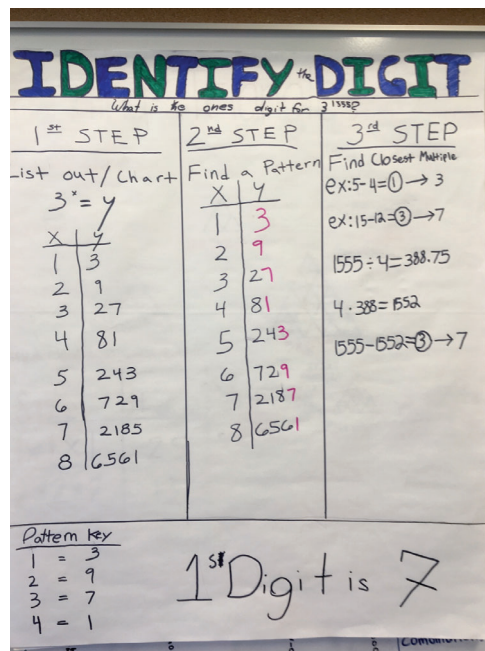 IDENTIFY the DIGIT
What is the ones digit for 3^1555?
1st STEP
List out/Chart
3^x = y
x | y
1 | 3
2 | 9
3 | 27
4 | 81
5 | 243
6 | 729
7 | 2185
8 | 6561
2nd STEP
Find a Pattern
X | Y
1 | 3
2 | 9
3 | 27
4 | 81
5 | 243
6 | 729
7 | 2187
8 | 6561
3rd STEP
Find Closest Multiple
ex: 5-4=1 → 3
ex: 15-12=3 → 7
1555 ÷ 4 = 388.75
4 · 388 = 1552
1555-1552=3 → 7
Pattern Key
1 = 3
2 = 9
3 = 7
4 = 1
1st Digit is 7